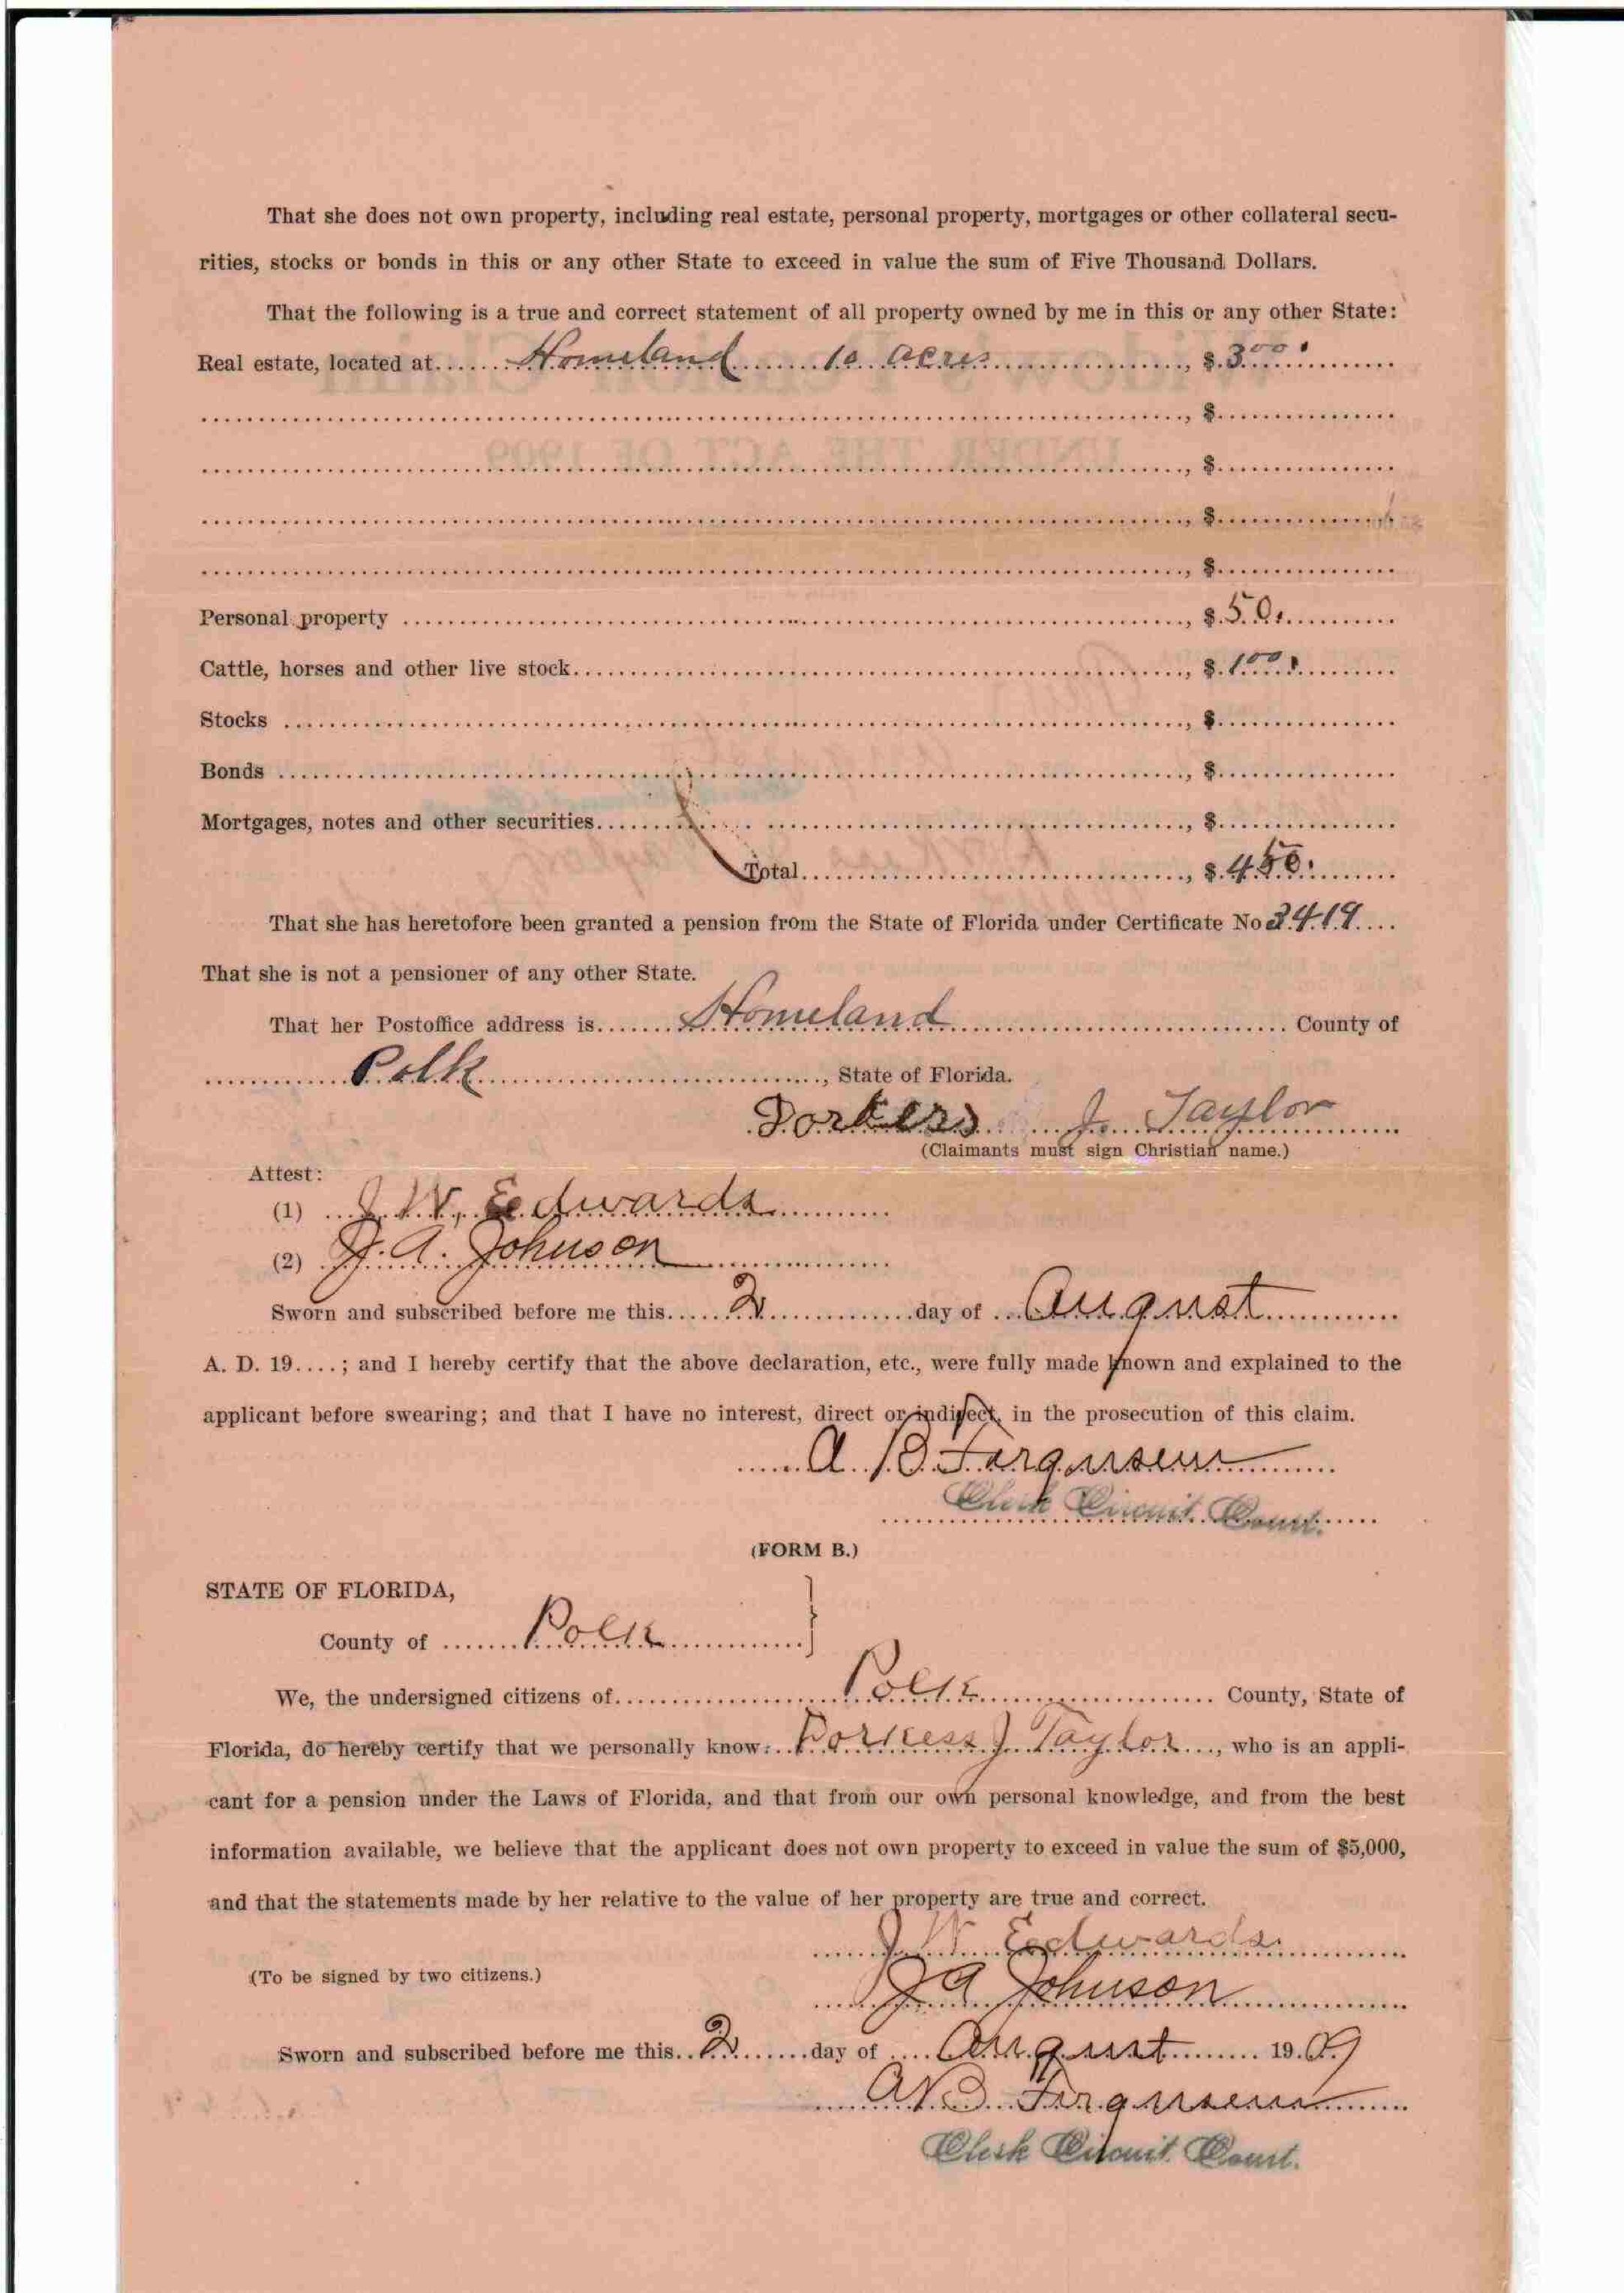 That she does not own property, including real estate, personal property, mortgages or other collateral secu-
rities, stocks or bonds in this or any other State to exceed in value the sum of Five Thousand Dollars.
That the following is a true and correct statement of all property owned by me in this or any other State:
Real estate, located at Homeland 10 acres, $ 300.
, $
, $
, $
, $
Personal property , $ 50.
Cattle, horses and other live stock , $ 100.
Stocks , $
Bonds , $
Mortgages, notes and other securities , $
Total , $ 450.
That she has heretofore been granted a pension from the State of Florida under Certificate No 3419
That she is not a pensioner of any other State.
That her Postoffice address is Homeland County of
Polk , State of Florida.
Dorkess J. Taylor
(Claimants must sign Christian name.)
Attest:
(1) J. W. Eedwards
(2) J. A. Johnson
Sworn and subscribed before me this 2 day of August
A. D. 19....; and I hereby certify that the above declaration, etc., were fully made known and explained to the
applicant before swearing; and that I have no interest, direct or indirect, in the prosecution of this claim.
A B Ferguson
Clerk Circuit Court.
(FORM B.)
STATE OF FLORIDA,
County of Polk
We, the undersigned citizens of Polk County, State of
Florida, do hereby certify that we personally know Dorkess J Taylor, who is an appli-
cant for a pension under the Laws of Florida, and that from our own personal knowledge, and from the best
information available, we believe that the applicant does not own property to exceed in value the sum of $5,000,
and that the statements made by her relative to the value of her property are true and correct.
J W Eedwards
(To be signed by two citizens.)
J A Johnson
Sworn and subscribed before me this 2 day of August 1909
A B Ferguson
Clerk Circuit Court.